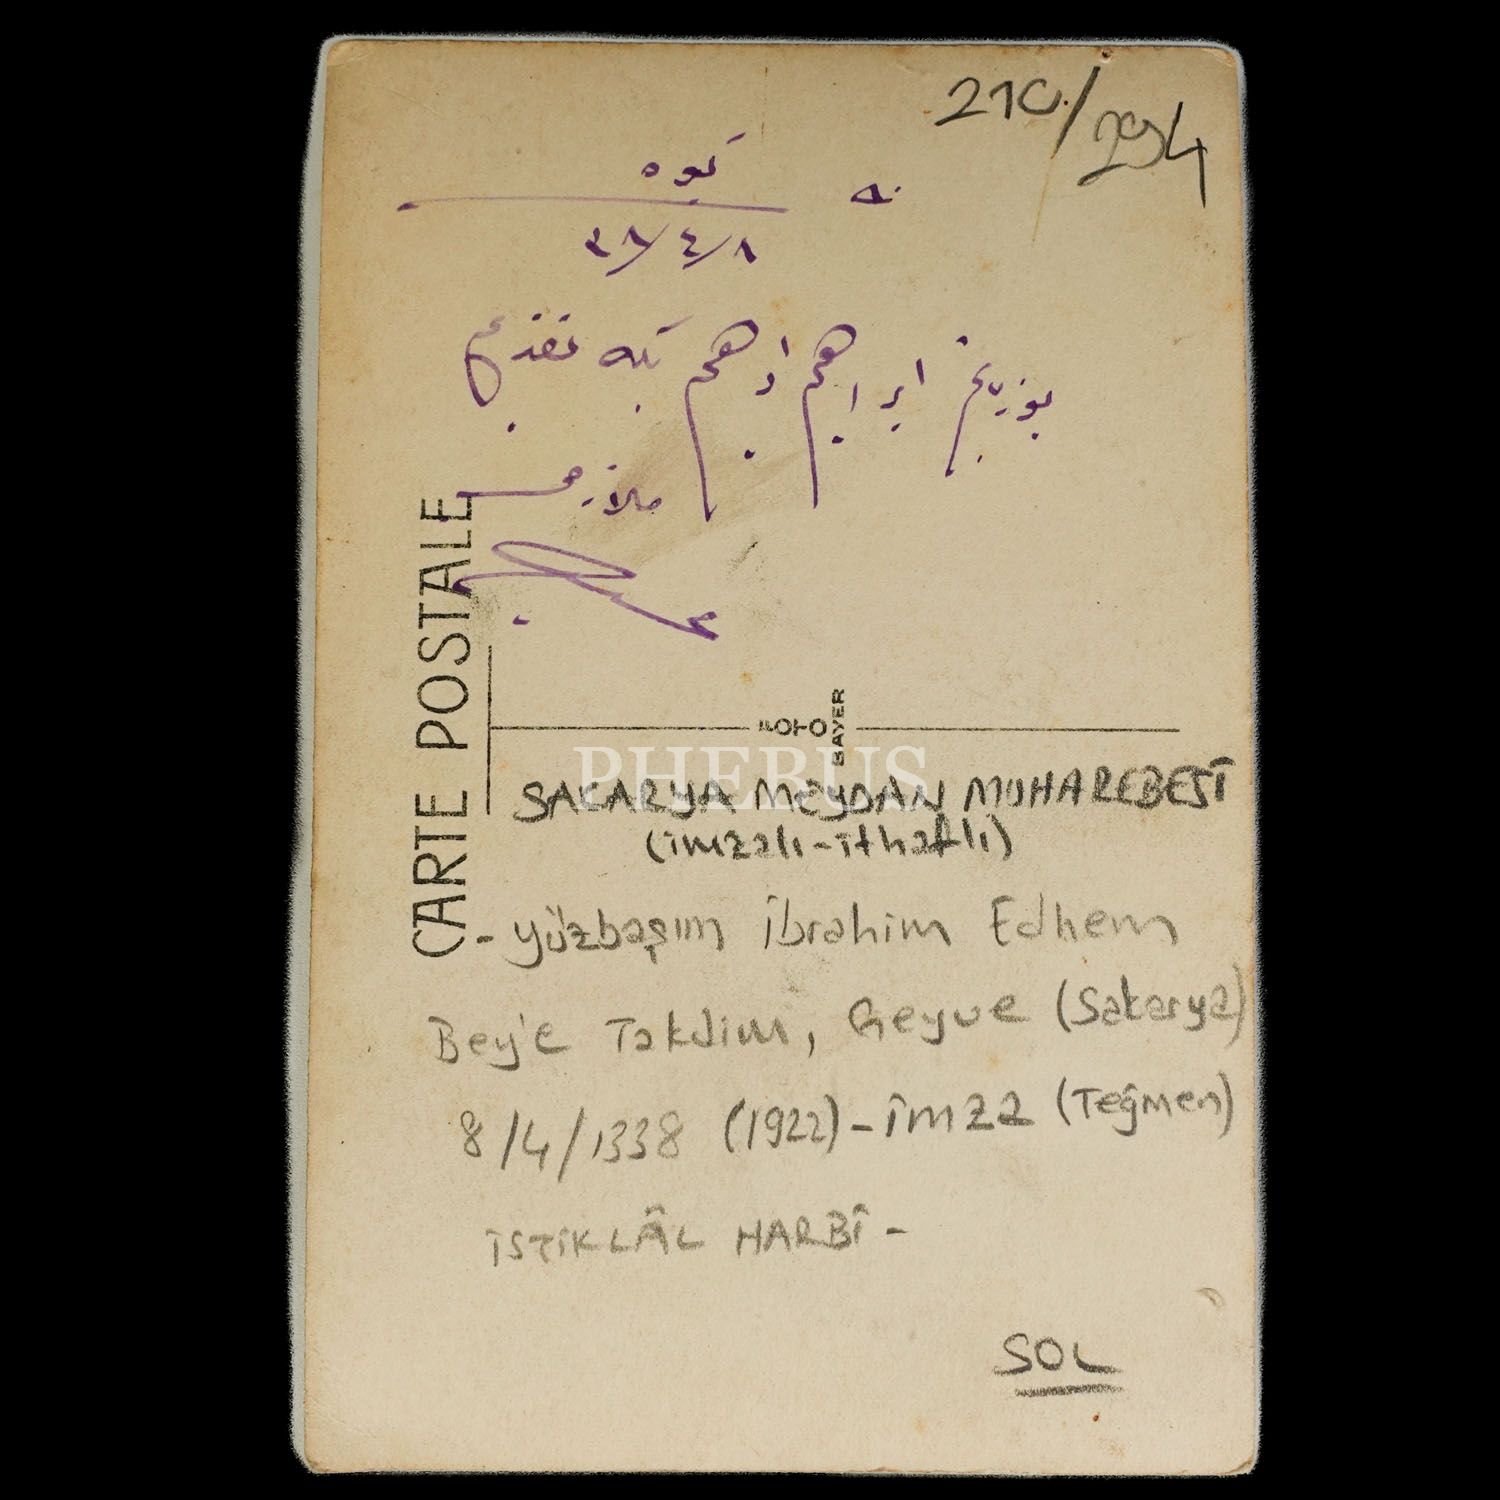 210/294
كيوه
٣٨/٤/٨
يوزباشم ابراهيم ادهم بكه تقديم
ملازم
CARTE POSTALE
FOTO
BAYER
PHEBUS
SAKARYA MEYDAN MUHAREBESİ
(imzalı-ithaflı)
- Yüzbaşım İbrahim Edhem
Bey'e Takdim, Geyve (Sakarya)
8/4/1338 (1922) - İmza (Teğmen)
İSTİKLÂL HARBİ -
SOL